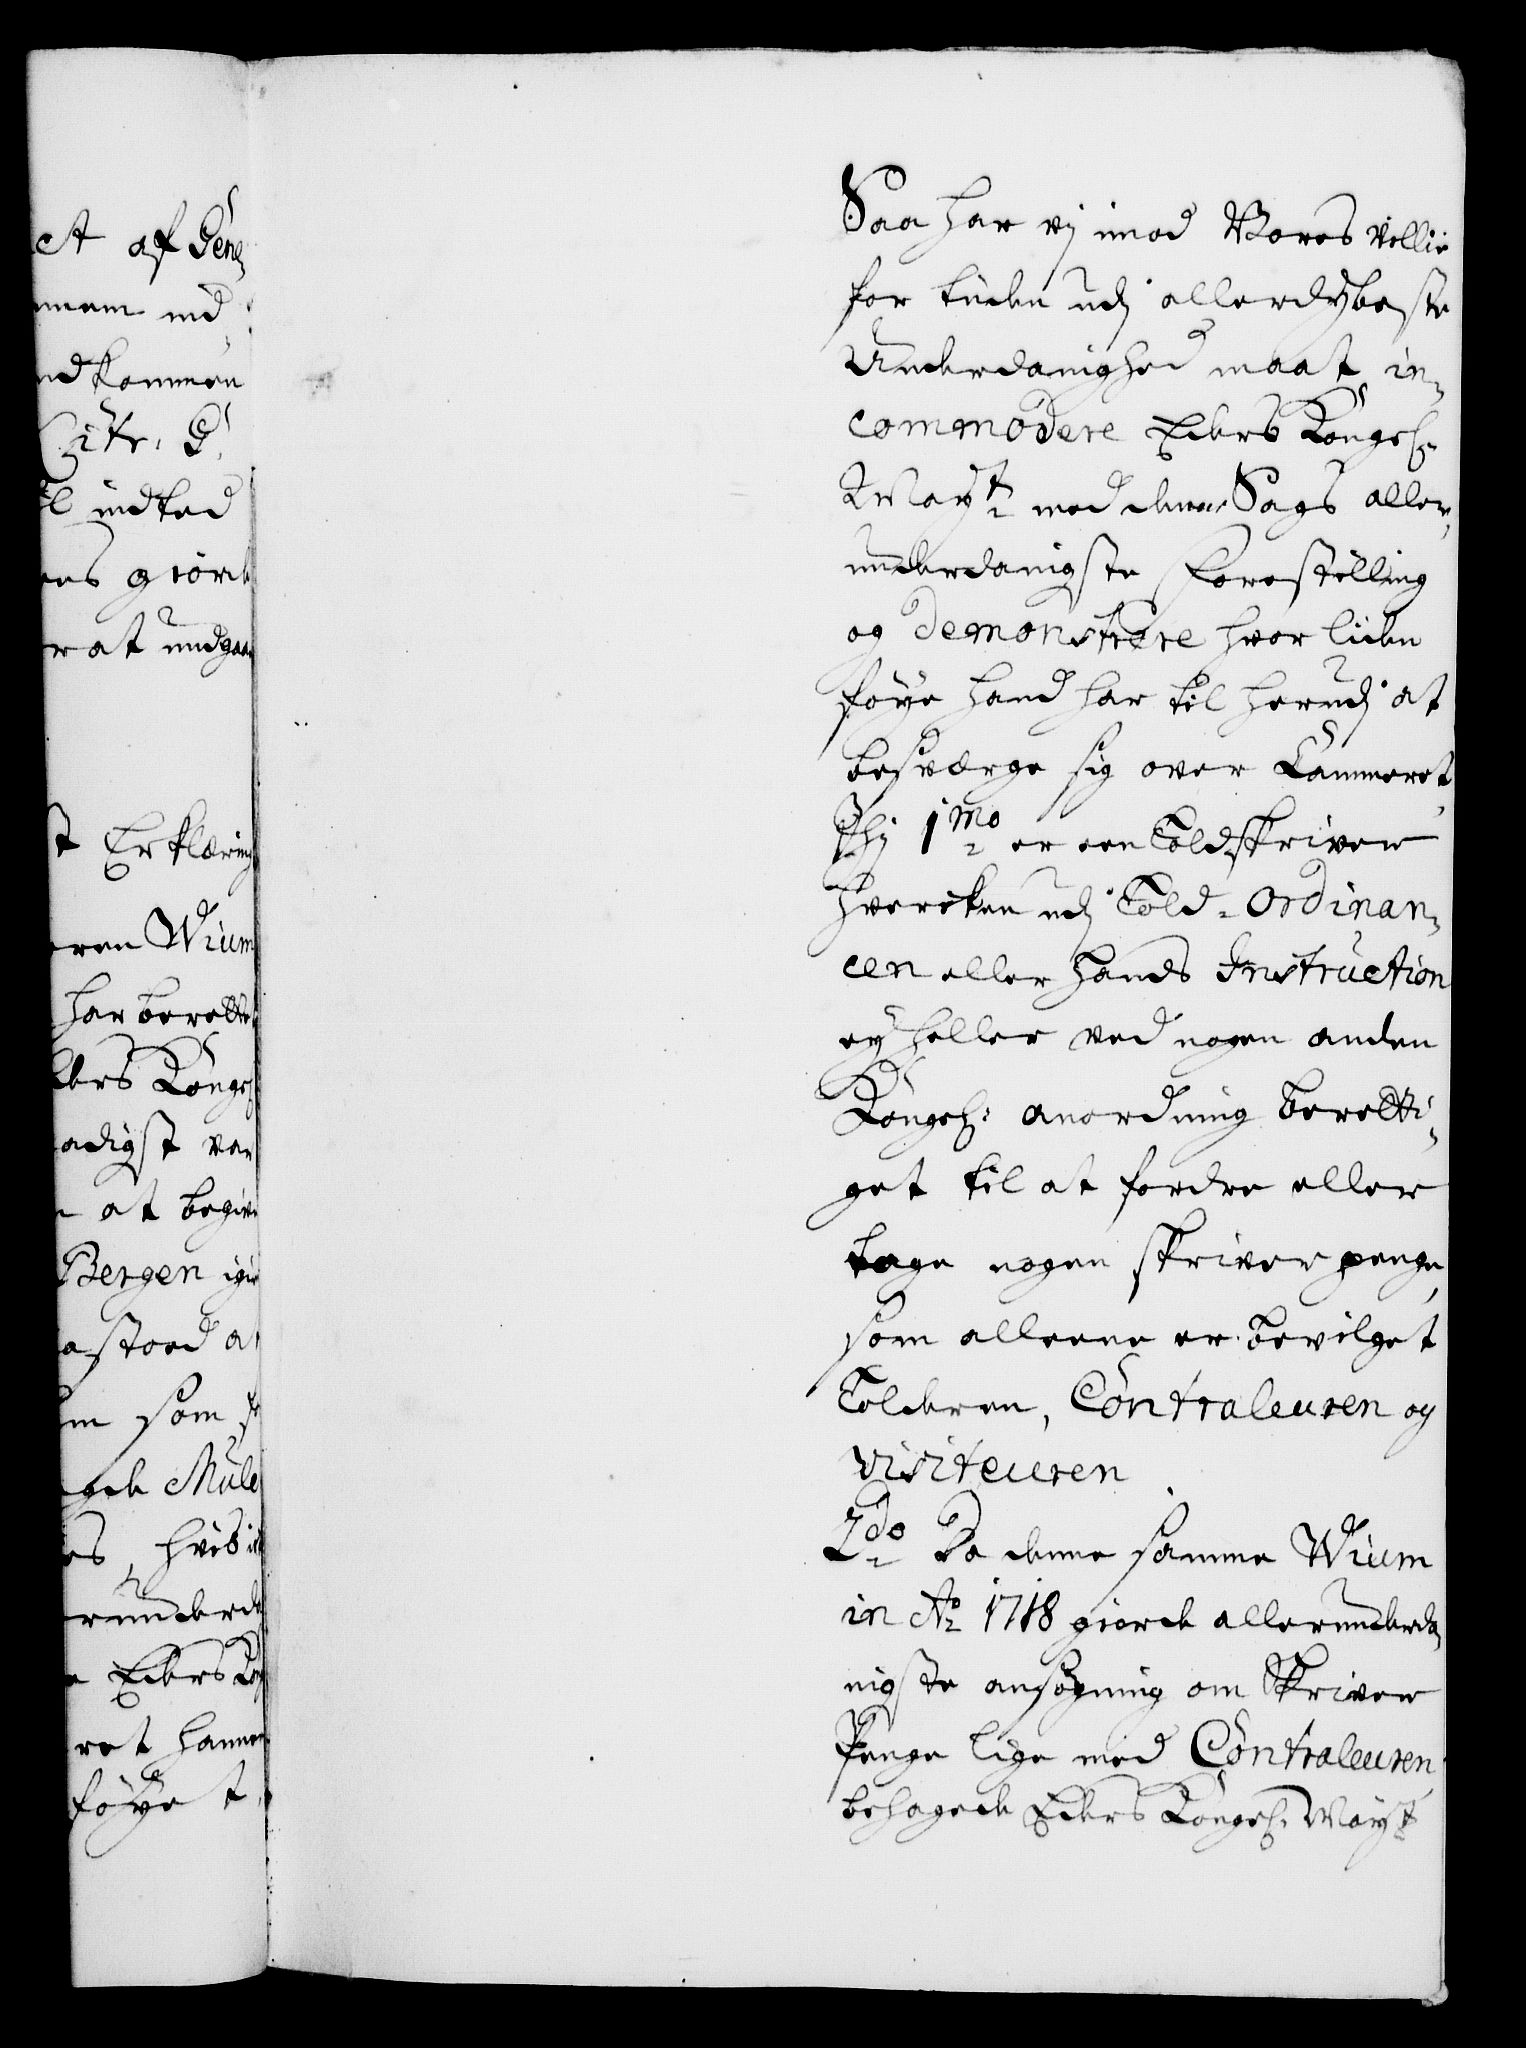 ct af Gene,
mem ind
ndkommen
Citr: G
el indked
es giorde
rat undgaa
st Erklæring
eren Wium
har berette
ders Konge
adigst var
at begive
Bergen igie
astoed a
m som
gede Mule
es, hvis
runderd
Eders Ko
ret hannem
føye t
Saa har vj imod Vores villie
for tiiden udj allerdybeste
Underdanighed maat in,
commodere Eders Kongel:
Mayt: med denne Sags aller,
underdanigste Forestilling
og demonstrere hvor liden
føye hand har til herudj at
besværge sig over Cammeret,
Thj 1mo er een Toldskriver
hvercken udj Told-Ordinan,
cen eller hands Instruction
ey heller ved nogen anden
Kongel: anordning beretti,
get til at fordre eller
tage nogen skriver penge,
som alleene er bevilget
Tolderen, Contraleuren og
visiteuren
2do Da denne samme Wium
in Ao 1718 giorde allerunderda,
nigste ansøgning om Skriver
Penge lige med Contraleuren
behagede Eders Kongel: Mayt: